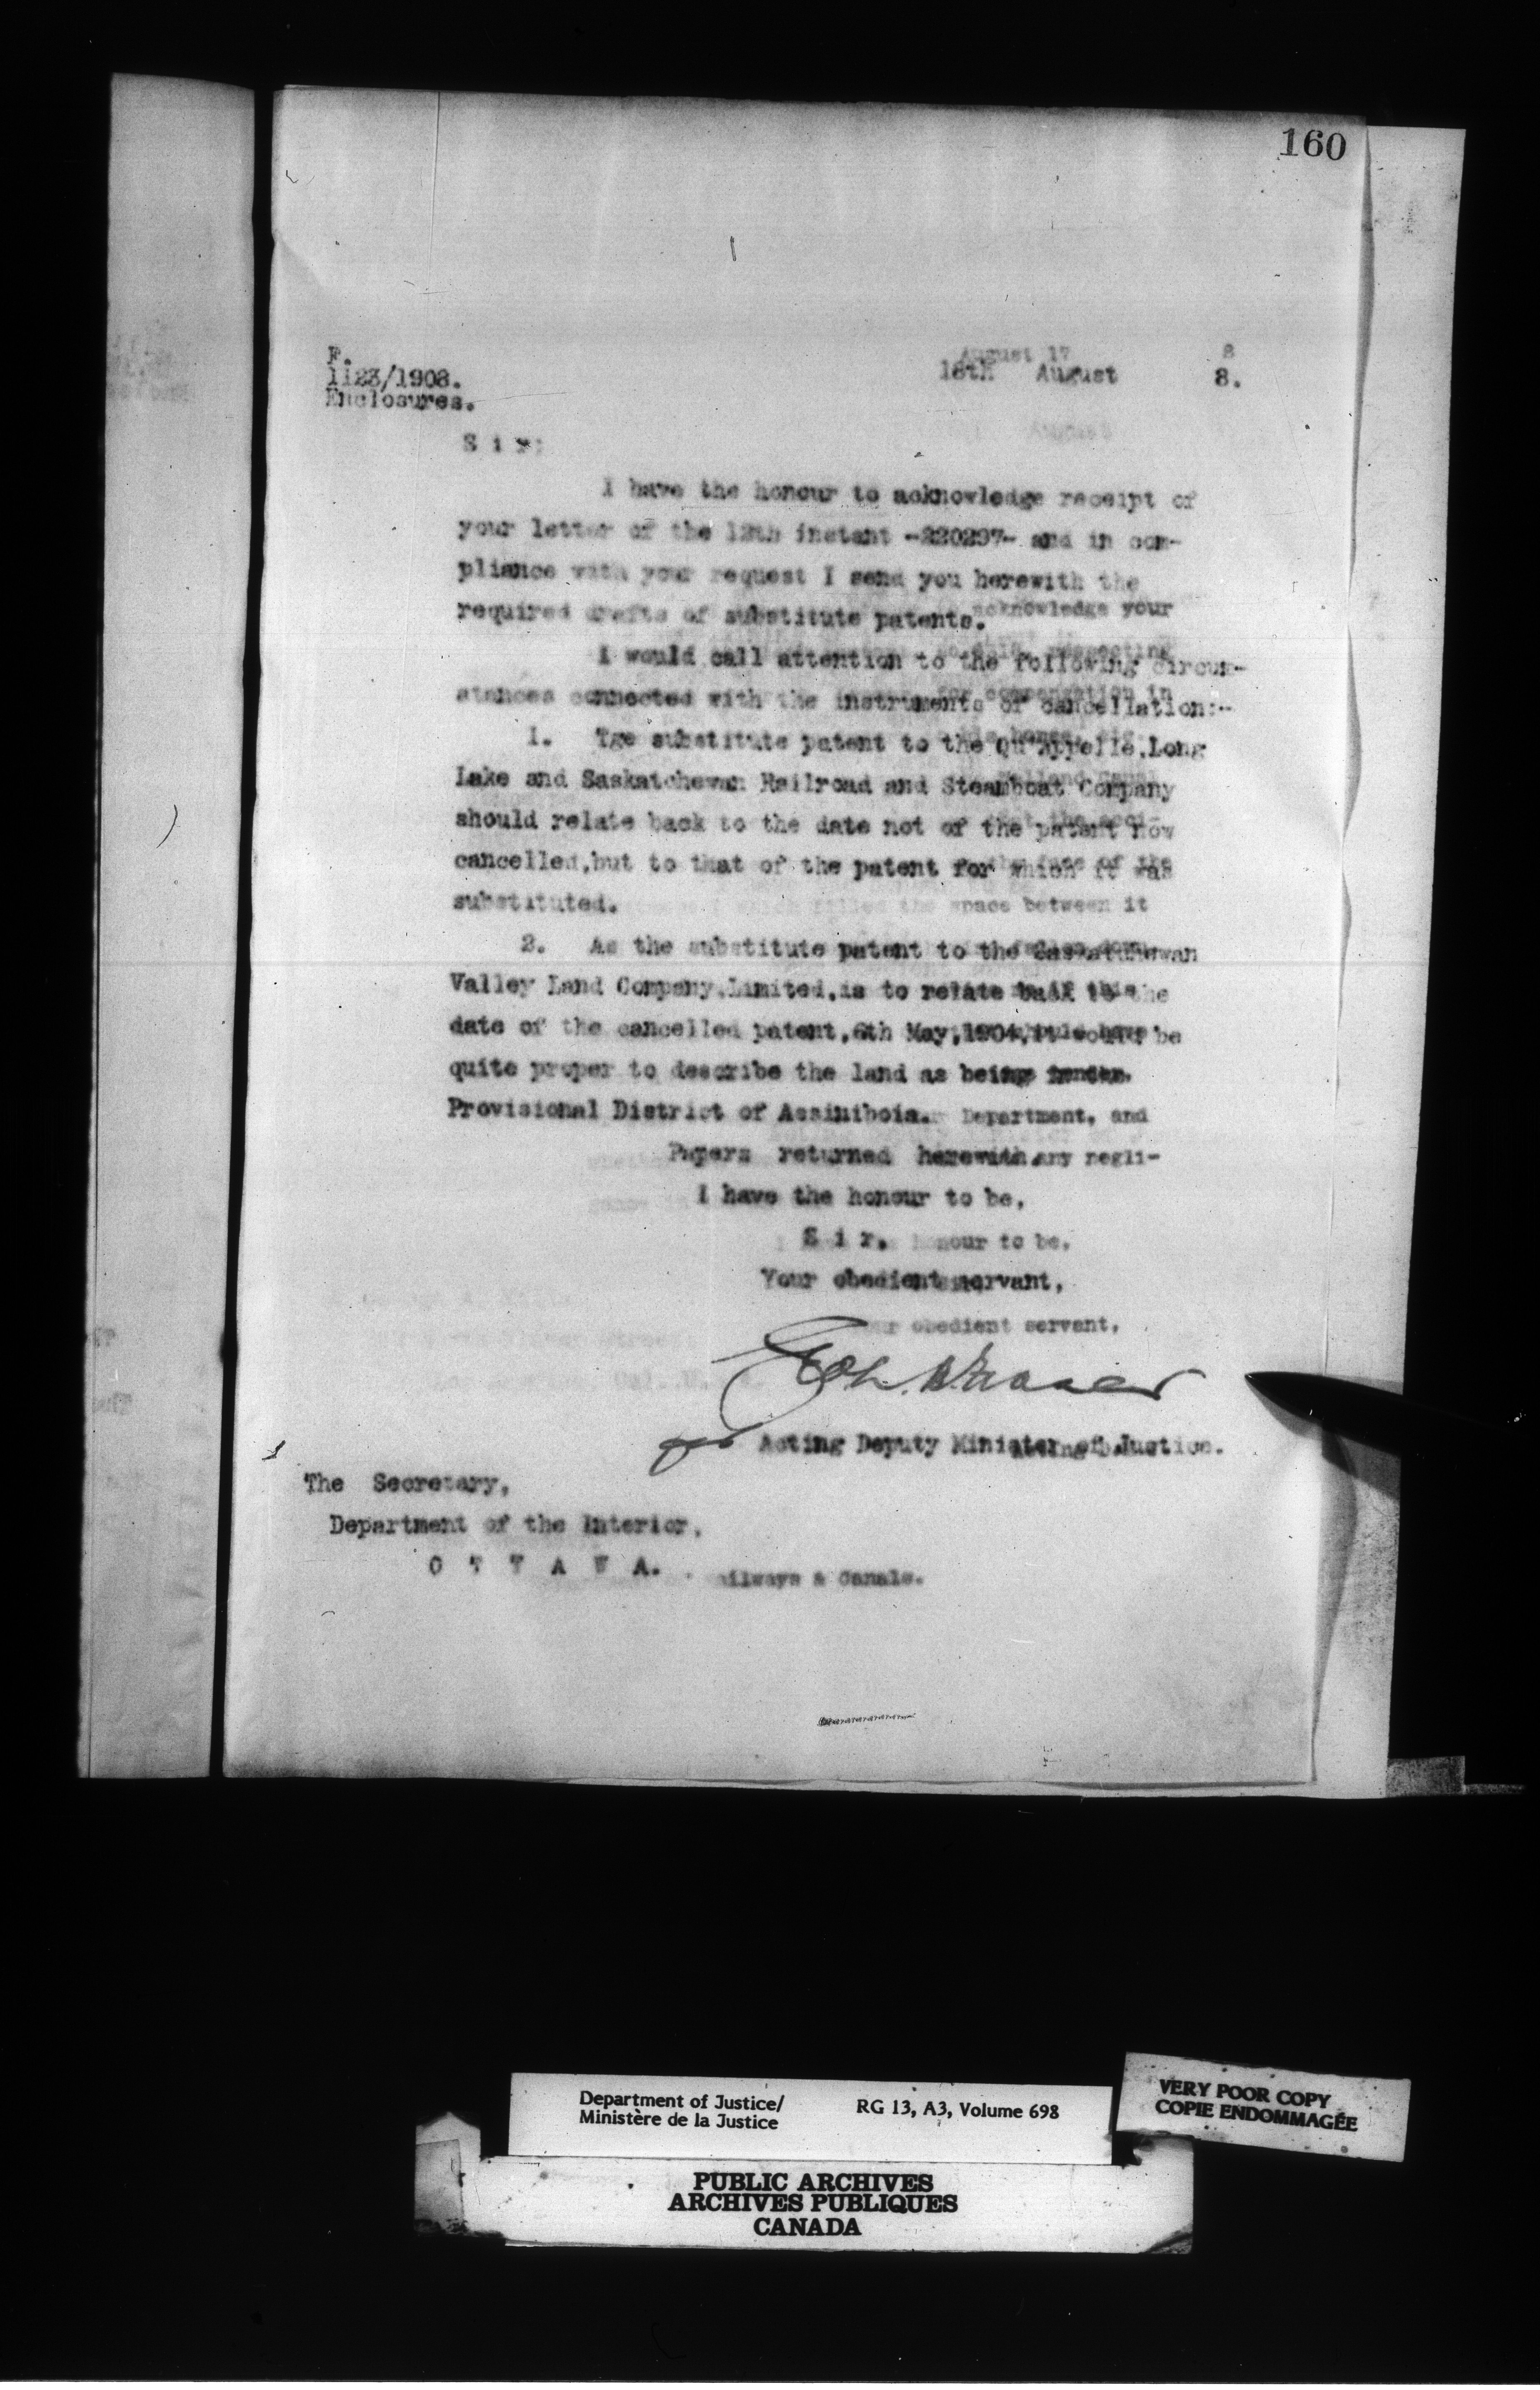 160
F.
1123/1908.
Enclosures.
August 17 8
18th August 8.
August
S i r:
I have the honour to acknowledge receipt of
your letter of the 12th instant -220297- and in com-
pliance with your request I send you herewith the
required drafts of substitute patents.
acknowledge your
I would call attention to the following circum-
respecting
stances connected with the instruments of cancellation:-
for compensation in
1. Tge substitute patent to the Qu'Appelle,Long
Lake and Saskatchewan Railroad and Steamboat Company
should relate back to the date not of the patent now
cancelled,but to that of the patent for which it was
substituted.
which filled the space between it
2. As the substitute patent to the Saskatchewan
Valley Land Company,Limited,is to relate back to the
date of the cancelled patent,6th May,1904,it would be
quite proper to describe the land as being in the
Provisional District of Assiniboia.
Department, and
Papers returned herewith.
any negli-
I have the honour to be,
S i r,
honour to be,
Your obedient servant,
obedient servant,
for Acting Deputy Minister of Justice.
The Secretary,
Department of the Interior,
O T T A W A.
ailways & Canals.
Department of Justice/
Ministère de la Justice
RG 13, A3, Volume 698
VERY POOR COPY
COPIE ENDOMMAGÉE
PUBLIC ARCHIVES
ARCHIVES PUBLIQUES
CANADA